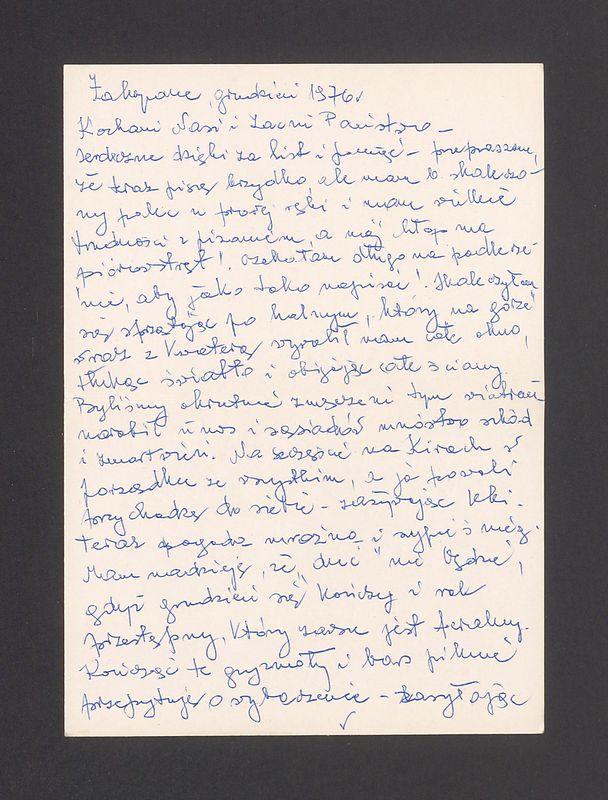 Zakopane, grudzień 1976r
Kochani Nasi i Zacni Państwo –
serdeczne dzięki za list i pamięć – przepraszam,
że teraz piszę brzydko ale mam b. skaleczo-
ny palec u prawej ręki i mam wielkie
trudności z pisaniem, a mój chłop ma
piórowstręt! Czekałam długo na podlecze-
nie, aby jako tako napisać! Skaleczyłam
się sprzątając po halnym, który na górze
wraz z kwaterą wyrwał nam całe okno,
tłukąc światło i obijając całe ściany.
Byliśmy okrutnie zmęczeni tym wiatrem
narobił u nas i sąsiadów mnóstwo szkód
i zmartwień. Na szczęście na Kirach w
porządku ze wszystkim, a ja powoli
przychodzę do siebie – zażywając leki.
Teraz pogoda mroźna i sypie śnieg.
Mam nadzieję, że "duć" nie będzie,
gdyż grudzień się kończy i rok
przestępny, który zawsze jest feralny.
Kończąc te gryzmoły i bars piknie
przepytuję o wybaczenie – zasyłając